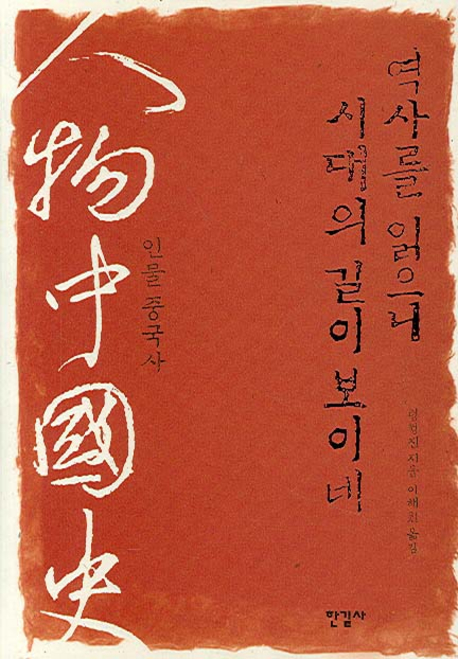 人物中國史
인물중국사
역사를 읽으니
시대의 길이 보이네
지음
옮김
한길사